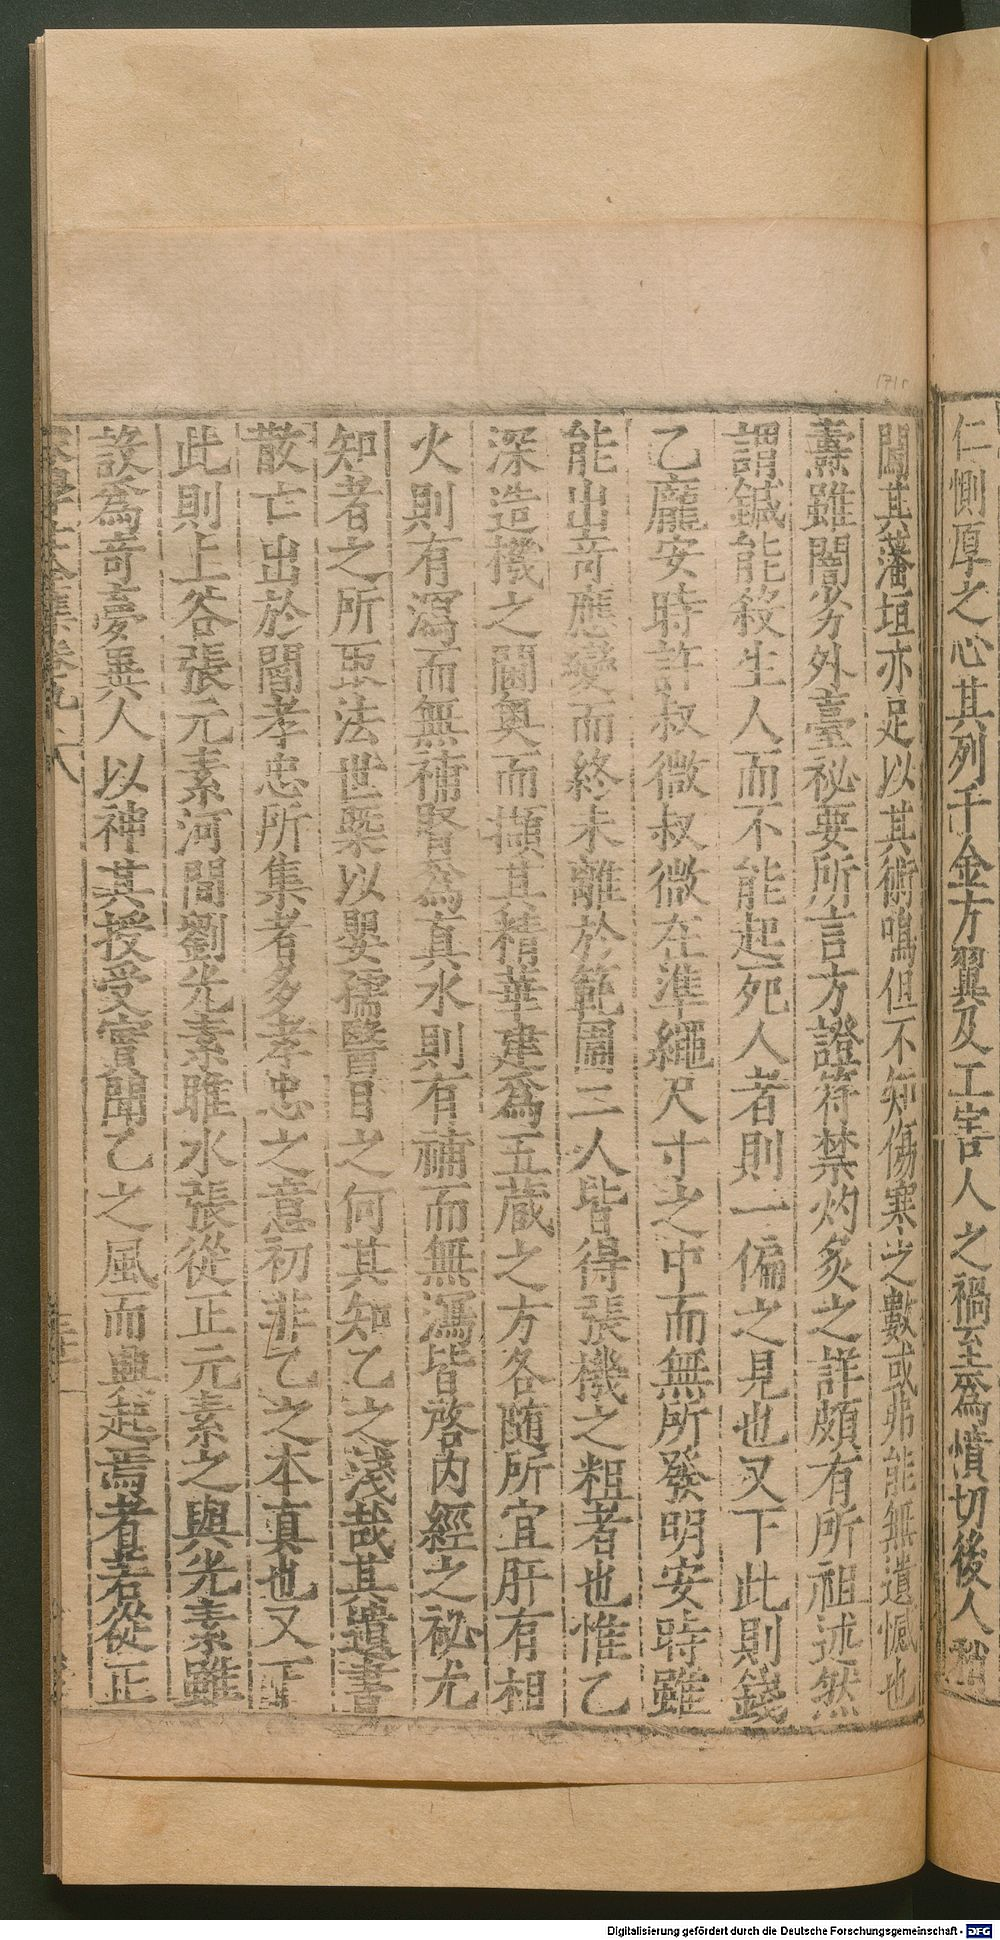 仁惻厚之心其列千金方翼及工害人之禍至為憤切後人稍
闖其藩垣亦足以其術鳴但不知傷寒之數或弗能無遺憾也
燾雖閹劣外臺秘要所言方證符禁灼炙之詳頗有所祖述然
謂鍼能殺生人而不能起死人者則一偏之見也又下此則錢
乙龐安時許叔微叔微在準繩尺寸之中而無所發明安時雖
能出奇應變而終未離於範圍二人皆得張機之粗者也惟乙
深造機之閫奧而擷其精華建為五蔵之方各随所宜肝有相
火則有瀉而無補腎為真水則有補而無瀉皆啓内經之祕尤
知者之所取法世槩以嬰孺醫目之何其知乙之淺哉其遺書
散亡出於閻孝忠所集者多孝忠之意初非乙之本真也又下
此則上谷張元素河間劉光素睢水張從正元素之與光素雖
設為奇夢異人以神其授受實聞乙之風而興起焉者若從正